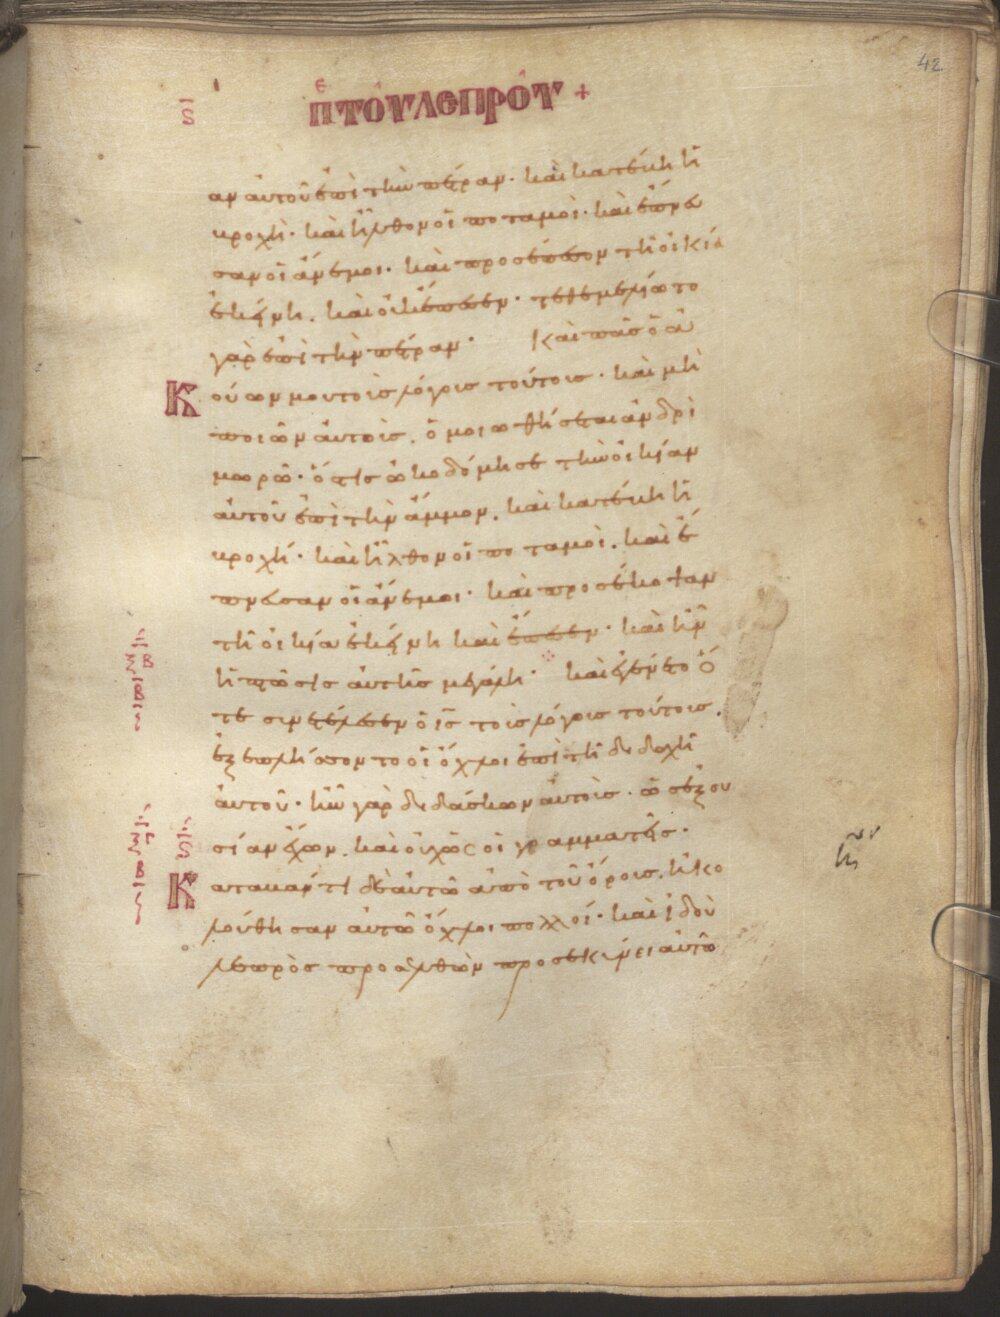 42
ϛ πε τοῦ λεπροῦ +
αν αὐτοῦ ἐπὶ τὴν πέτραν· καὶ κατέβη ἡ
βροχὴ· καὶ ἦλθον οἱ ποταμοὶ· καὶ ἔπνευ
σαν οἱ ἄνεμοι· καὶ προσέπεσον τῆ οἰκία
ἐκείνη. καὶ οὐκ ἔπεσεν· τεθεμελίωτο
γὰρ ἐπὶ τὴν πέτραν· Καὶ πᾶς ὁ ἀ
Κ ούων μου τοὺς λόγους τούτους· καὶ μὴ
ποιῶν αὐτοὺς. ὁμοιωθήσεται ἀνδρὶ
μωρῶ· ὅστις ὠκοδόμησε τὴν οἰκίαν
αὐτοῦ ἐπὶ τὴν ἄμμον. καὶ κατέβη ἡ
βροχή· καὶ ἦλθον οἱ ποταμοὶ. καὶ ἔ
πνευσαν οἱ ἄνεμοι· καὶ προσέκοψαν
τῆ οἰκία ἐκείνη καὶ ἔπεσεν· καὶ ἦν
ἡ πτῶσις αὐτῆς μεγάλη· καὶ ἐγένετο ὅ
τε συνετέλεσεν ὁ ις τοὺς λόγους τούτους.
ἐξεπλήσσοντο οἱ ὄχλοι ἐπὶ τῆ διδαχῆ
αὐτοῦ· ἦν γὰρ διδάσκων αὐτοὺς· ὡς ἐξου
σίαν ἔχων. καὶ οὐχ ὡς οἱ γραμματεῖς·
Κ αταβάντι δὲ αὐτῶ ἀπὸ τοῦ ὄρους. ἠκο
λούθησαν αὐτῶ ὄχλοι πολλοί· καὶ ἰδοὺ
λεπρὸς προσελθὼν προσεκύνει αὐτῶ